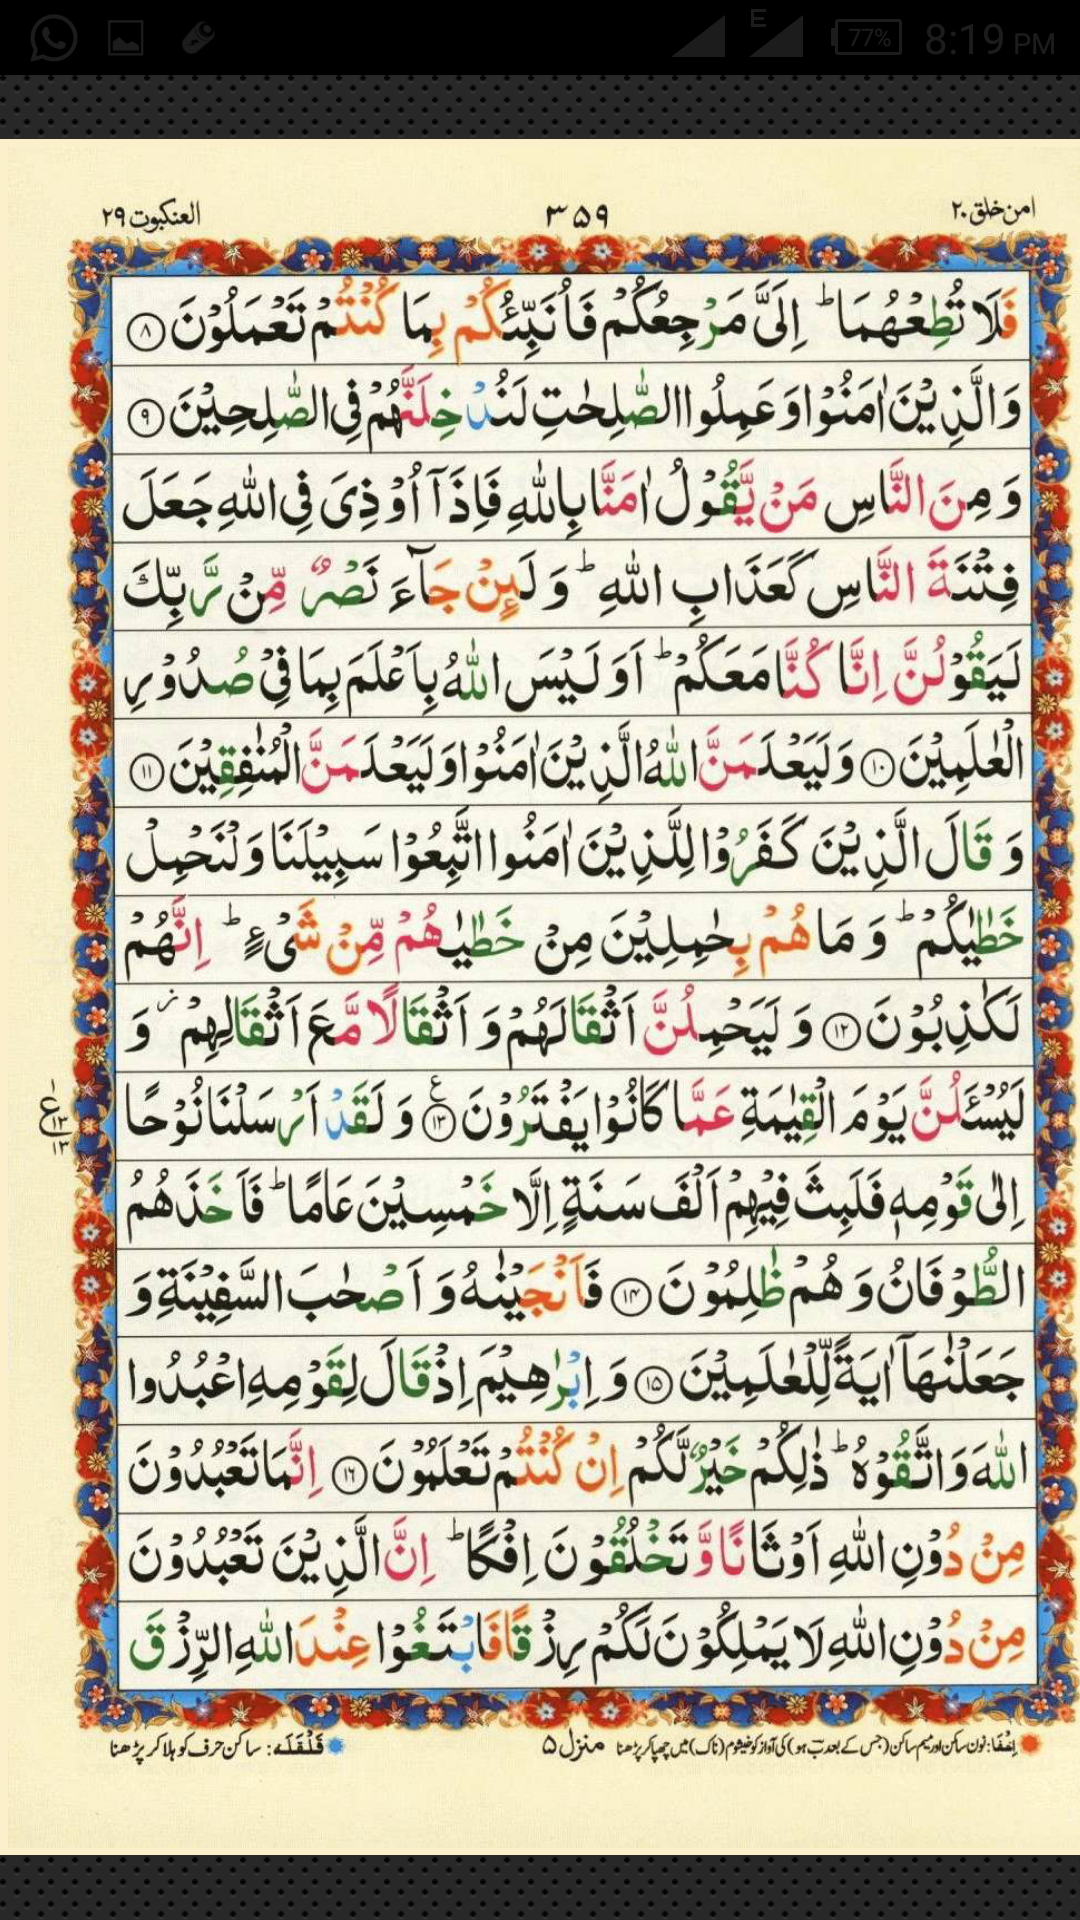 E 77% 8:19 PM
امن خلق ۲۰ ۳۵۹ العنکبوت ۲۹
فَلَا تُطِعْهُمَا ؕ اِلَیَّ مَرْجِعُكُمْ فَاُنَبِّئُكُمْ بِمَا كُنْتُمْ تَعْمَلُوْنَ ﴿۸﴾
وَالَّذِیْنَ اٰمَنُوْا وَعَمِلُوا الصّٰلِحٰتِ لَنُدْخِلَنَّهُمْ فِی الصّٰلِحِیْنَ ﴿۹﴾
وَ مِنَ النَّاسِ مَنْ یَّقُوْلُ اٰمَنَّا بِاللّٰهِ فَاِذَاۤ اُوْذِیَ فِی اللّٰهِ جَعَلَ
فِتْنَةَ النَّاسِ كَعَذَابِ اللّٰهِ ؕ وَ لَىِٕنْ جَآءَ نَصْرٌ مِّنْ رَّبِّكَ
لَیَقُوْلُنَّ اِنَّا كُنَّا مَعَكُمْ ؕ اَوَ لَیْسَ اللّٰهُ بِاَعْلَمَ بِمَا فِیْ صُدُوْرِ
الْعٰلَمِیْنَ ﴿۱۰﴾ وَ لَیَعْلَمَنَّ اللّٰهُ الَّذِیْنَ اٰمَنُوْا وَ لَیَعْلَمَنَّ الْمُنٰفِقِیْنَ ﴿۱۱﴾
وَ قَالَ الَّذِیْنَ كَفَرُوْا لِلَّذِیْنَ اٰمَنُوا اتَّبِعُوْا سَبِیْلَنَا وَ لْنَحْمِلْ
خَطٰیٰكُمْ ؕ وَ مَا هُمْ بِحٰمِلِیْنَ مِنْ خَطٰیٰهُمْ مِّنْ شَیْءٍ ؕ اِنَّهُمْ
لَكٰذِبُوْنَ ﴿۱۲﴾ وَ لَیَحْمِلُنَّ اَثْقَالَهُمْ وَ اَثْقَالًا مَّعَ اَثْقَالِهِمْ ؗ وَ
لَیُسْـَٔلُنَّ یَوْمَ الْقِیٰمَةِ عَمَّا كَانُوْا یَفْتَرُوْنَ ﴿۱۳﴾ۧ وَ لَقَدْ اَرْسَلْنَا نُوْحًا
۱ ع ۱۳ ۱۳
اِلٰی قَوْمِهٖ فَلَبِثَ فِیْهِمْ اَلْفَ سَنَةٍ اِلَّا خَمْسِیْنَ عَامًا ؕ فَاَخَذَهُمُ
الطُّوْفَانُ وَ هُمْ ظٰلِمُوْنَ ﴿۱۴﴾ فَاَنْجَیْنٰهُ وَ اَصْحٰبَ السَّفِیْنَةِ وَ
جَعَلْنٰهَاۤ اٰیَةً لِّلْعٰلَمِیْنَ ﴿۱۵﴾ وَ اِبْرٰهِیْمَ اِذْ قَالَ لِقَوْمِهِ اعْبُدُوا
اللّٰهَ وَ اتَّقُوْهُ ؕ ذٰلِكُمْ خَیْرٌ لَّكُمْ اِنْ كُنْتُمْ تَعْلَمُوْنَ ﴿۱۶﴾ اِنَّمَا تَعْبُدُوْنَ
مِنْ دُوْنِ اللّٰهِ اَوْثَانًا وَّ تَخْلُقُوْنَ اِفْكًا ؕ اِنَّ الَّذِیْنَ تَعْبُدُوْنَ
مِنْ دُوْنِ اللّٰهِ لَا یَمْلِكُوْنَ لَكُمْ رِزْقًا فَابْتَغُوْا عِنْدَ اللّٰهِ الرِّزْقَ
اِخْفَا: نون ساکن اور میم ساکن (جس کے بعد ب ہو) کی آواز کو خیشوم (ناک) میں چھپا کر پڑھنا منزل ۵ قَلْقَلَه: ساکن حرف کو ہلا کر پڑھنا